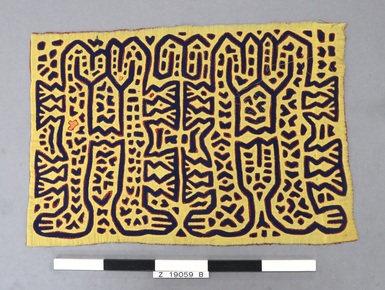 Z 19059 B